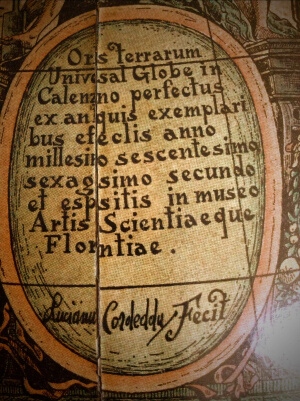 Oris terrarum
Univosal Globe in
Calenzno perfectus
ex anquis exemplari
bus efectis anno
millesimo sescentesimo
sexagsimo secundo
et espsitis in museo
Artis Scientiaeque
Florntiae.
Lucianu Cordeddu Fecit